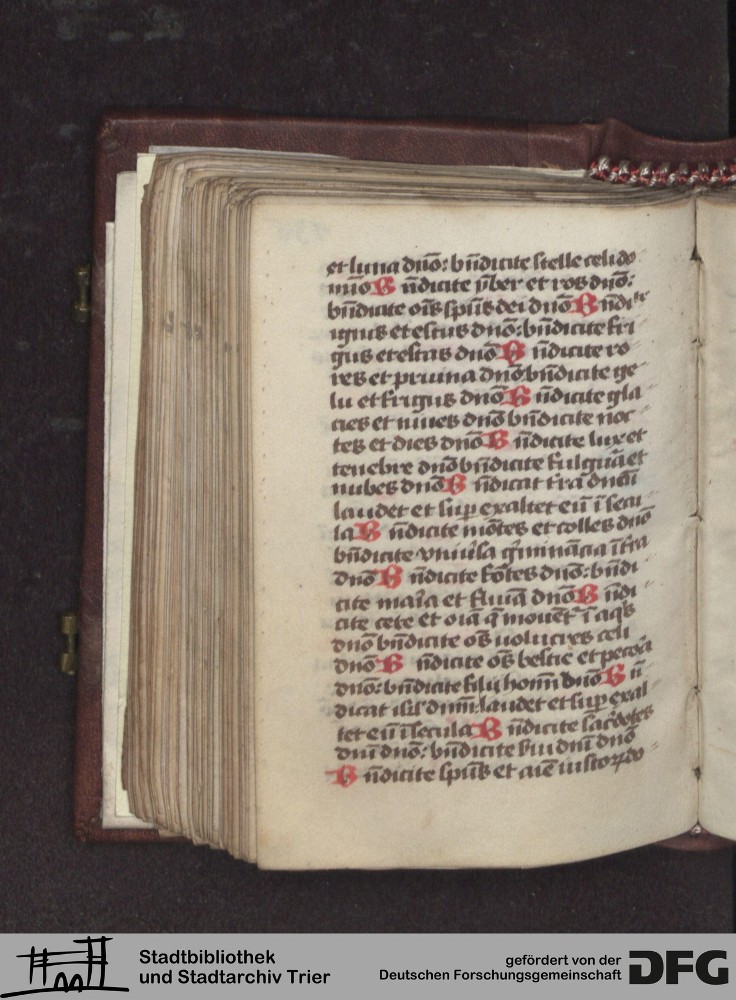 et luna dn̄o: bn̄dicite stelle celi do
mīo Bn̄dicite ȳber et ros dn̄o:
bn̄dicite om̄s sp̄us dei dn̄o Bn̄di
ignis et estus dn̄o: bn̄dicite fri
gus et estas dn̄o Bn̄dicite ro
res et pruina dn̄o bn̄dicite ge
lu et frigus dn̄o Bn̄dicite gla
cies et niues dn̄o bn̄dicite noc
tes et dies dn̄o Bn̄dicite lux et
tenebre dn̄o bn̄dicite fulgura et
nubes dn̄o Bn̄dicat t̄ra dn̄m
laudet et sup̄exaltet eū ī secu
la Bn̄dicite mōtes et colles dn̄o
bn̄dicite vniūsa gm̄inācia ī t̄ra
dn̄o Bn̄dicite fōtes dn̄o: bn̄di
cite maīa et fluīa dn̄o Bn̄di
cite cete et oīa q̄ mouent᷑ ī aq̄s
dn̄o bn̄dicite om̄s uolucres celi
dn̄o Bn̄dicite om̄s bestie et pecora
dn̄o: bn̄dicite filij hoīm dn̄o Bn̄
dicat isr̄l dn̄m: laudet et sup̄exal
tet eū ī secula Bn̄dicite sac̄dotes
dn̄i dn̄o: bn̄dicite s̄ui dn̄i dn̄o
Bn̄dicite sp̄us et aīe iustoꝝ do
Stadtbibliothek
und Stadtarchiv Trier
gefördert von der
Deutschen Forschungsgemeinschaft
DFG